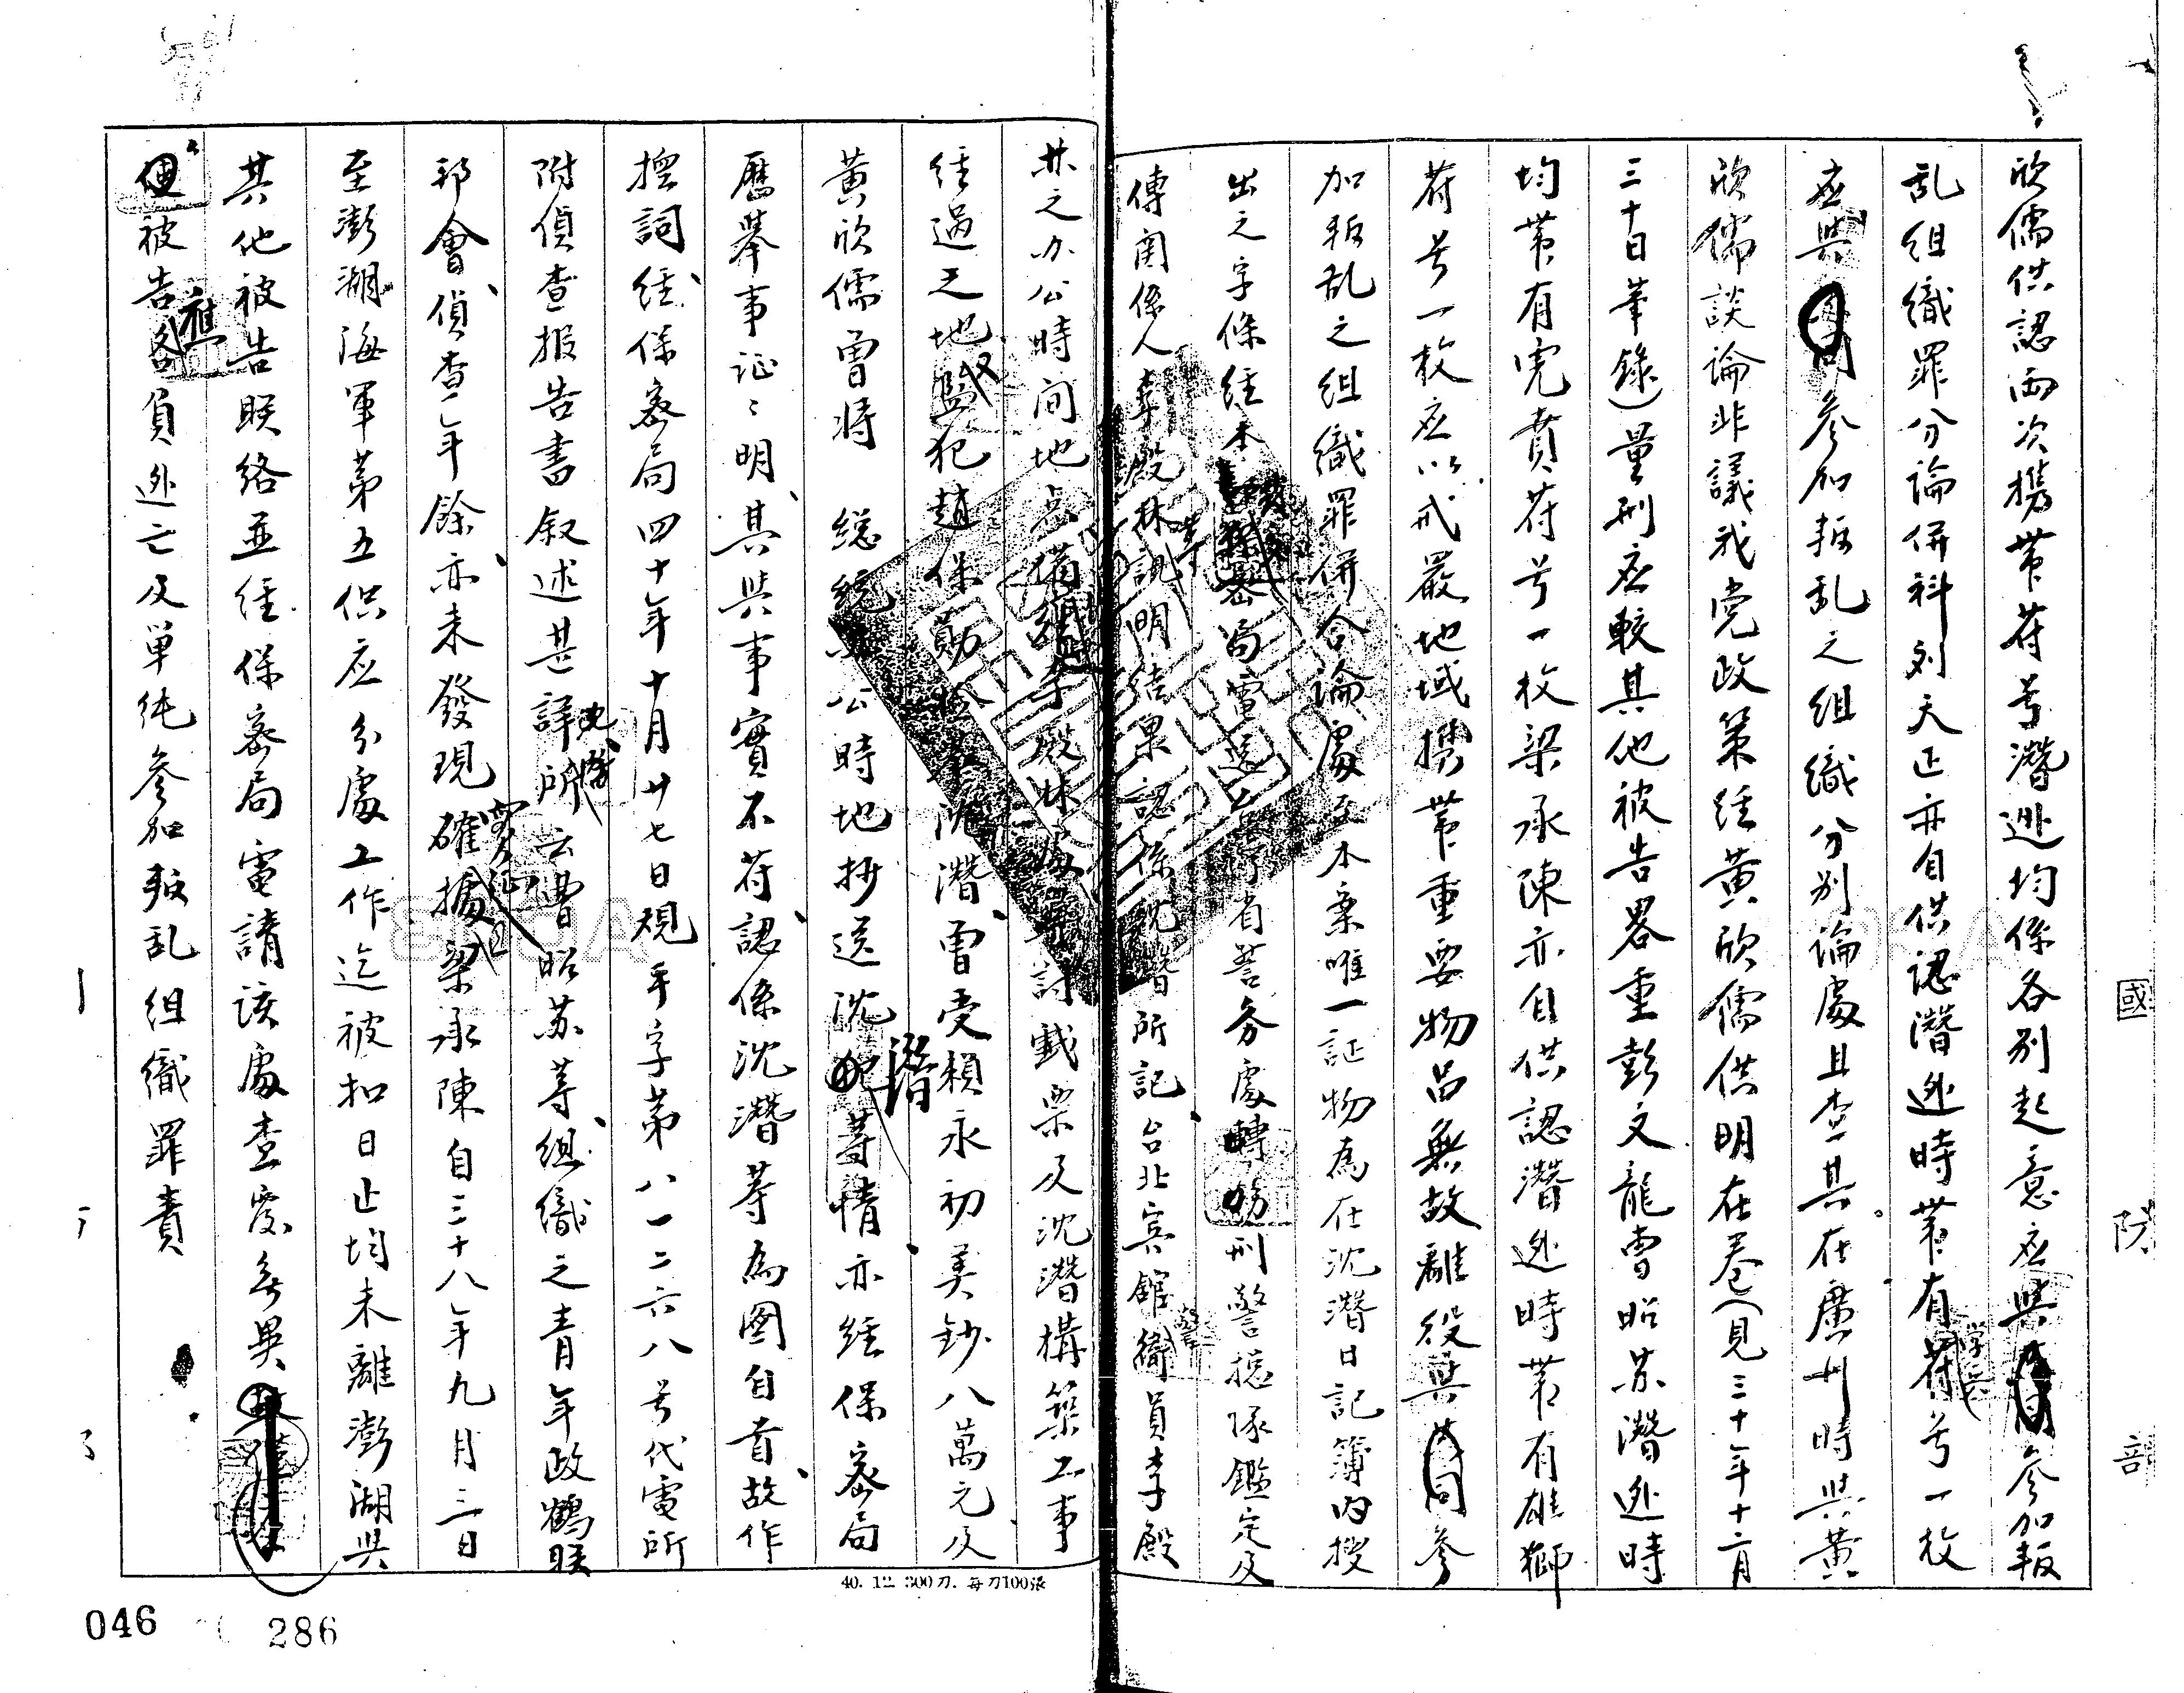 欣儒供認兩次携帶符号潛逃均係各別起意应與參加叛
乱組織罪分論併科刘天正亦自供認潛逃時帶有符号一枚
应與參加叛乱之組織分别論處且查其在廣州時與黃
欣儒談論非議我党政策経黃欣儒供明在卷(見三十年十二月
三十日筆錄)量刑应較其他被告畧重彭文龍曹昭苏潛逃時
均帶有完賁符号一枚梁承陳亦自供認潛逃時帶有雄獅
符号一枚应以戒嚴地域携帶重要物品無故離役與參
加叛乱之組織罪併合論處至本案唯一証物為在沈潛日記簿內搜
出之字條経本局電送台灣省警务處轉刑警総隊鑑定及
傳関係人李殿林訊明結果認係沈潛所記台北宾館衛員李殿
林之办公時间地点備李殿林討戲票及沈潛構築工事
経過之地監犯趙保勛檢举沈潛曹受賴永初美鈔八萬元及
黃欣儒曹將 総統办公時地抄送沈潛等情亦経保密局
歷舉事証証明其與事實不符認係沈潛等為图自首故作
揑詞経保密局四十年十月廿七日規平字第八一二六八号代電所
附偵查报告書叙述甚詳所云曹昭苏等組織之青年政鶴联
邦會偵查年餘亦未發現確據梁承陳自三十八年九月三日
至澎湖海軍第五供应分處工作迄被扣日止均未離澎湖與
其他被告联络並経保密局電請该處查察無異
被告應負逃亡及单纯參加叛乱組織罪責
40. 12. 300刀. 每刀100張
046
286
國
防
部